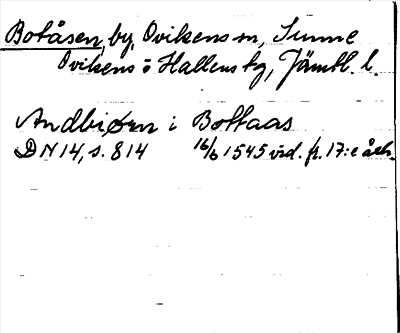 Botåsen, by, Ovikens sn, Sunne
Ovikens o Hallens tg, Jämtl. l.
Andbiørn i Bottaas
DN 14, s. 814 16/6 1545 vid. fr. 17:e årh.